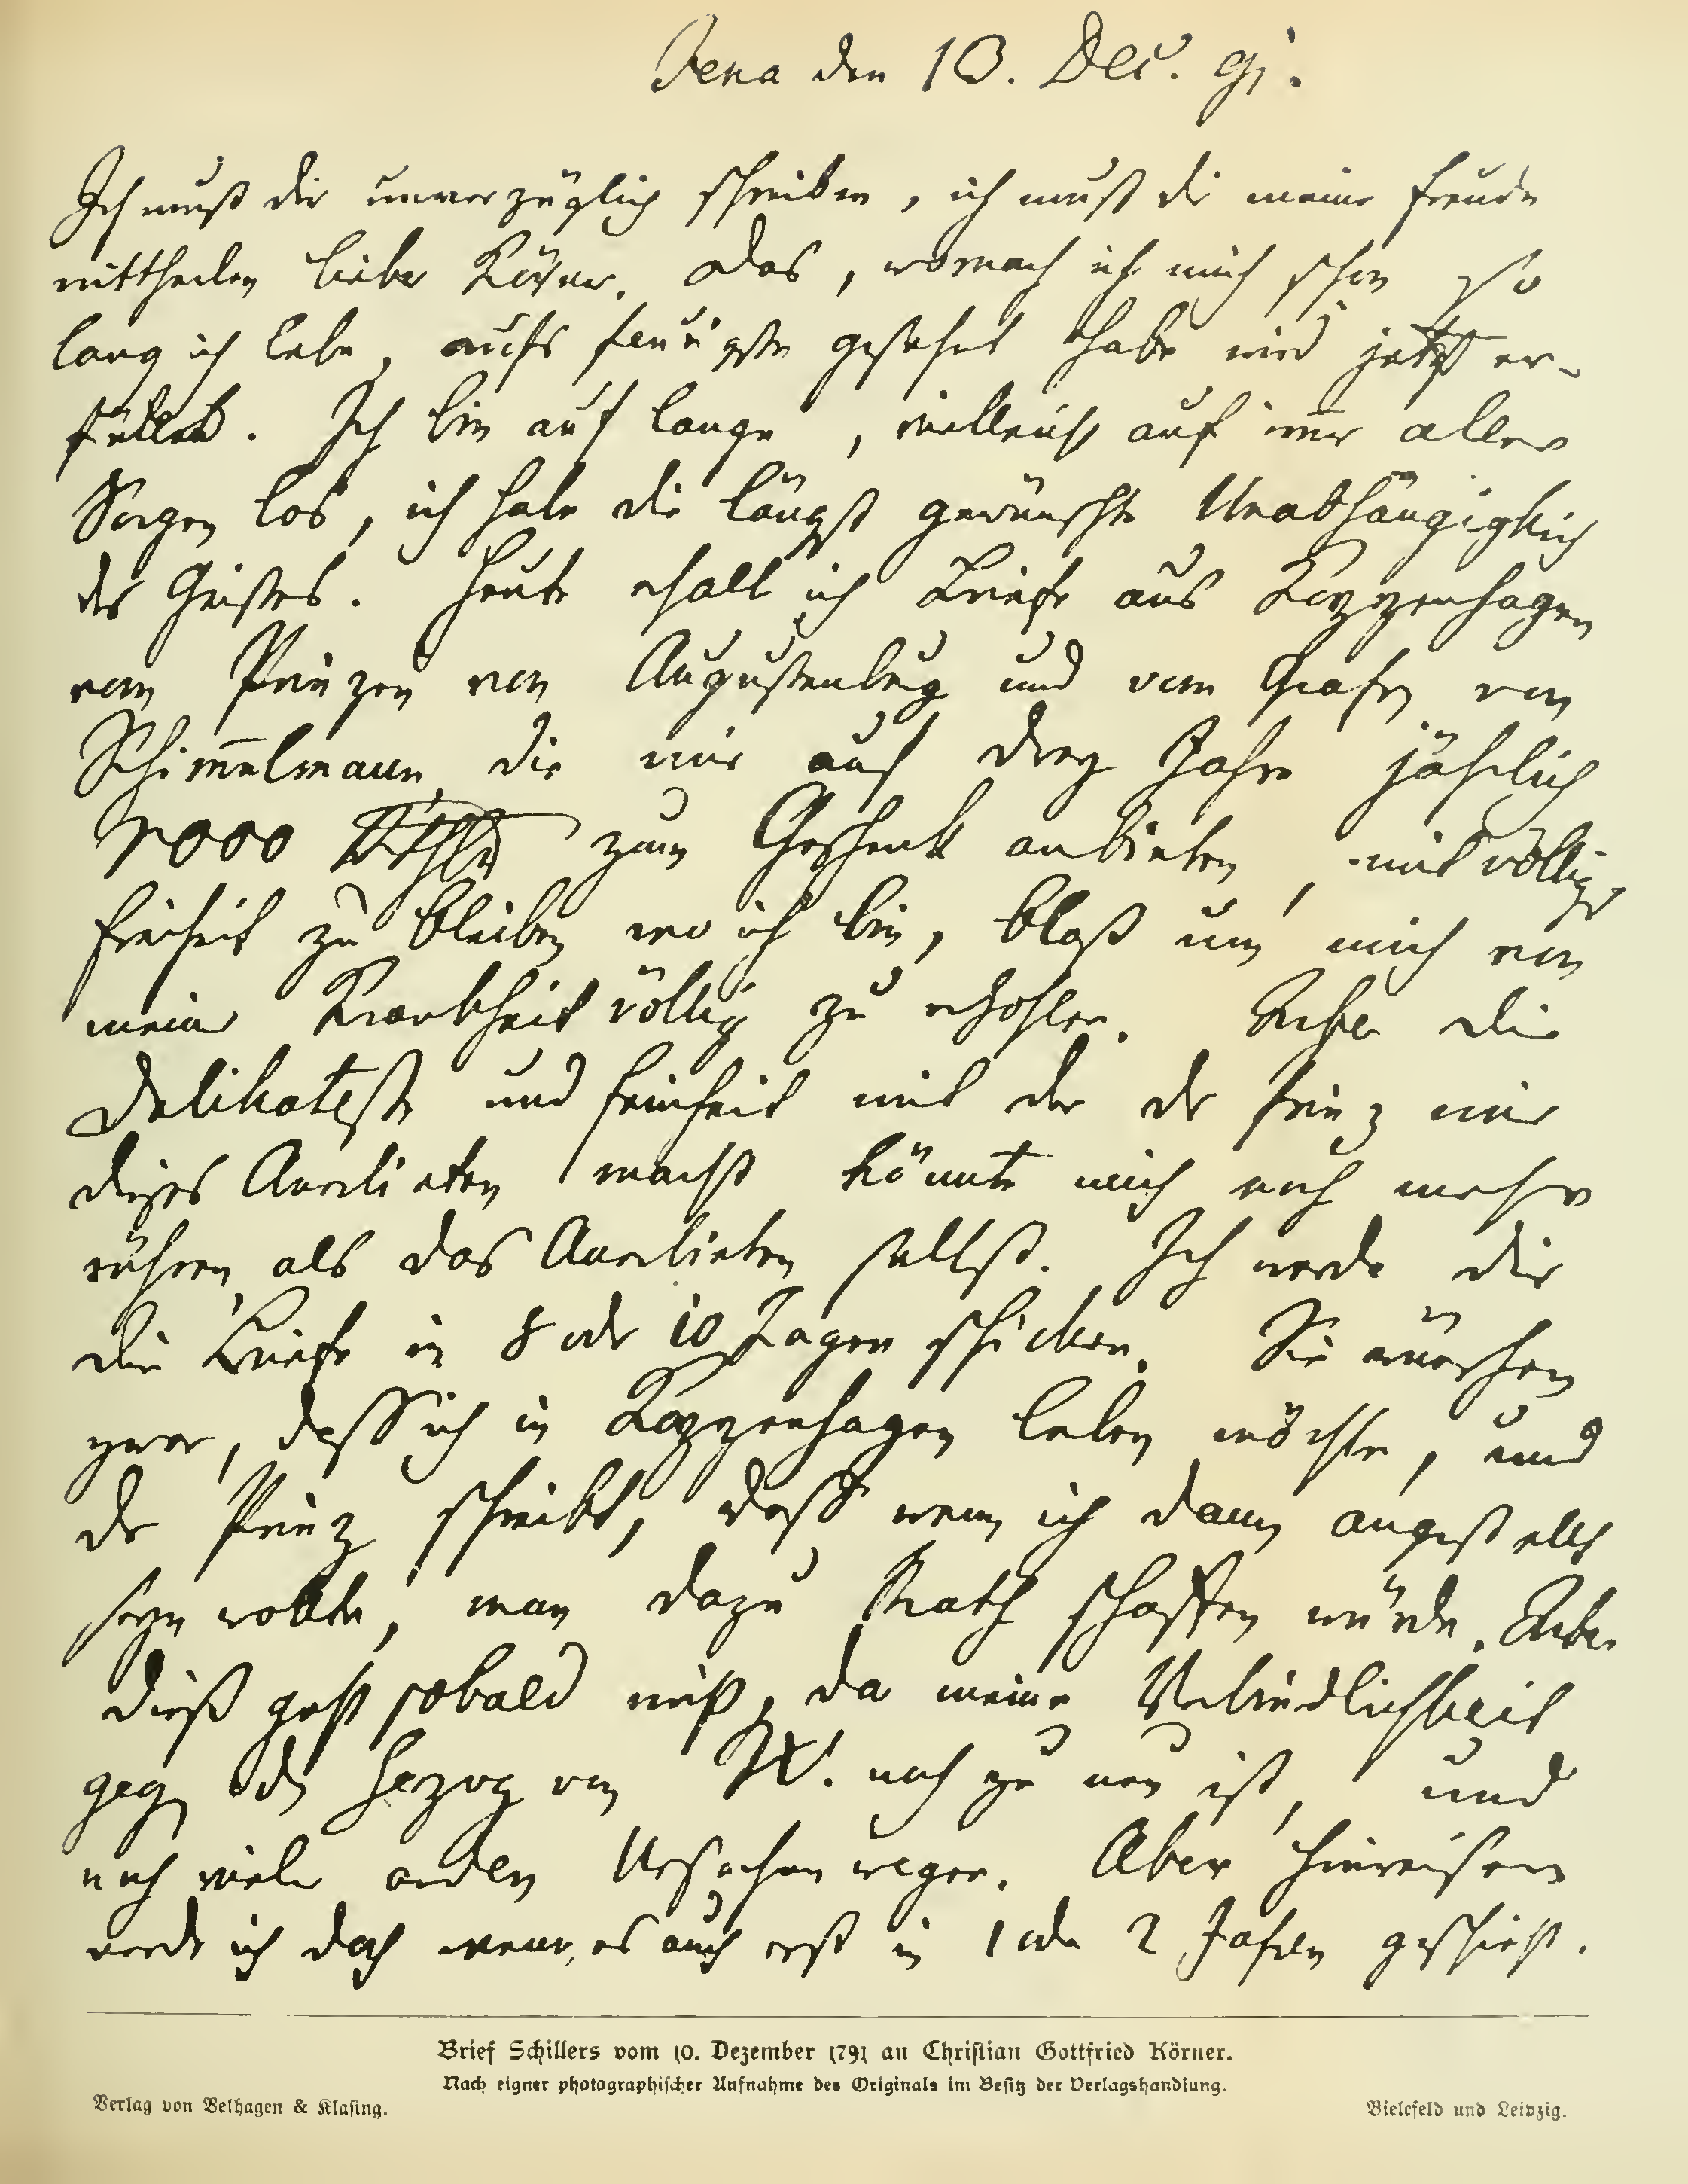 Jena den 10. Dec. 91.
Ich muß dir unverzüglich schreiben, ich muß dir meine Freude
mittheilen lieber Körner. Das, wornach ich mich schon so
lang ich lebe, aufs feurigste gesehnt habe wird jetzt er-
füllt. Ich bin auf lange, vielleicht auf im̄er aller
Sorgen los, ich habe die längst gewünschte Unabhängigkeit
des Geistes. Heute erhalt ich Briefe aus Koppenhagen
vom Prinzen von Augustenburg und vom Grafen von
Schim̄elmann, die mir auf drey Jahre jährlich
1000 Rthlr zum Geschenk anbieten, mit völliger
Freiheit zu bleiben wo ich bin, bloß um mich von
meiner Krankheit völlig zu erhohlen. Aber die
Delikatesse und Feinheit mit der der Prinz mir
dieses Anerbieten macht könnte mich noch mehr
rühren, als das Anerbieten selbst. Ich werde dir
die Briefe in 8 oder 10 Tagen schicken. Sie wünschen
zwar, daß ich in Koppenhagen leben möchte, und
der Prinz schreibt, daß wenn ich dann angestellt
seyn wollte, man dazu Rath schaffen würde. Aber
dieß geht sobald nicht, da meine Verbindlichkeit
gegen den Herzog von W. noch zu neu ist, und
noch vieler andern Ursachen wegen. Aber hinreisen
werde ich doch wenn es auch erst in 1 oder 2 Jahren geschieht.
Brief Schillers vom 10. Dezember 1791 an Christian Gottfried Körner.
Nach eigner photographischer Aufnahme des Originals im Besitz der Verlagshandlung.
Verlag von Velhagen & Klasing. Bielefeld und Leipzig.